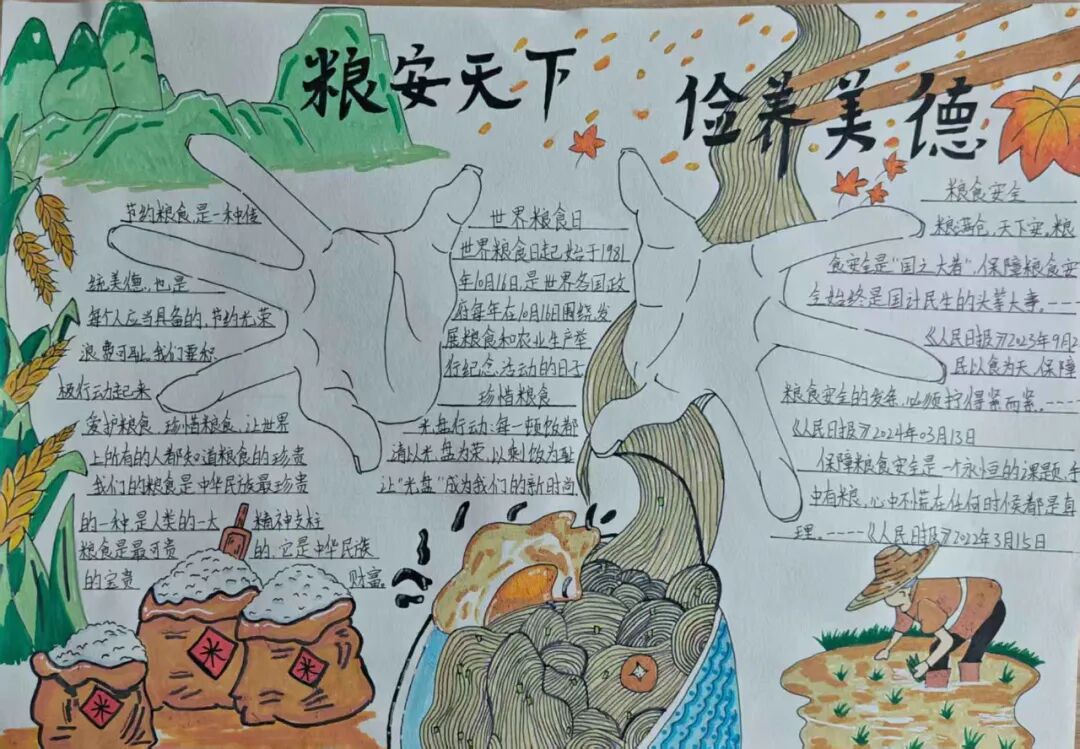 粮安天下
俭养美德
节约粮食是一种传
统美德,也是
每个人应当具备的,节约光荣
浪费可耻,我们要积
极行动起来
爱护粮食,珍惜粮食,让世界
上的所有的人都知道粮食的珍贵
我们的粮食是中华民族最珍贵
的一种是人类的一大 精神支柱
粮食是最可贵 的,它是中华民族
的宝贵 财富。
世界粮食日
世界粮食日起始于1981
年10月16日,是世界各国政
府每年在10月16日围绕发
展粮食和农业生产举
行纪念活动的日子
珍惜粮食
光盘行动:每一顿饭都
请以光盘为荣,以剩饭为耻
让“光盘”成为我们的新时尚
粮食安全
粮满仓,天下安,粮
食安全是“国之大者”,保障粮食安
全始终是国计民生的头等大事。----
《人民日报》2023年9月2
民以食为天,保障
粮食安全的发条,必须拧得紧而紧。----
《人民日报》2024年03月13日
保障粮食安全是一个永恒的课题,手
中有粮,心中不慌在任何时候都是真
理。-----《人民日报》2022年3月15日
米
米
米